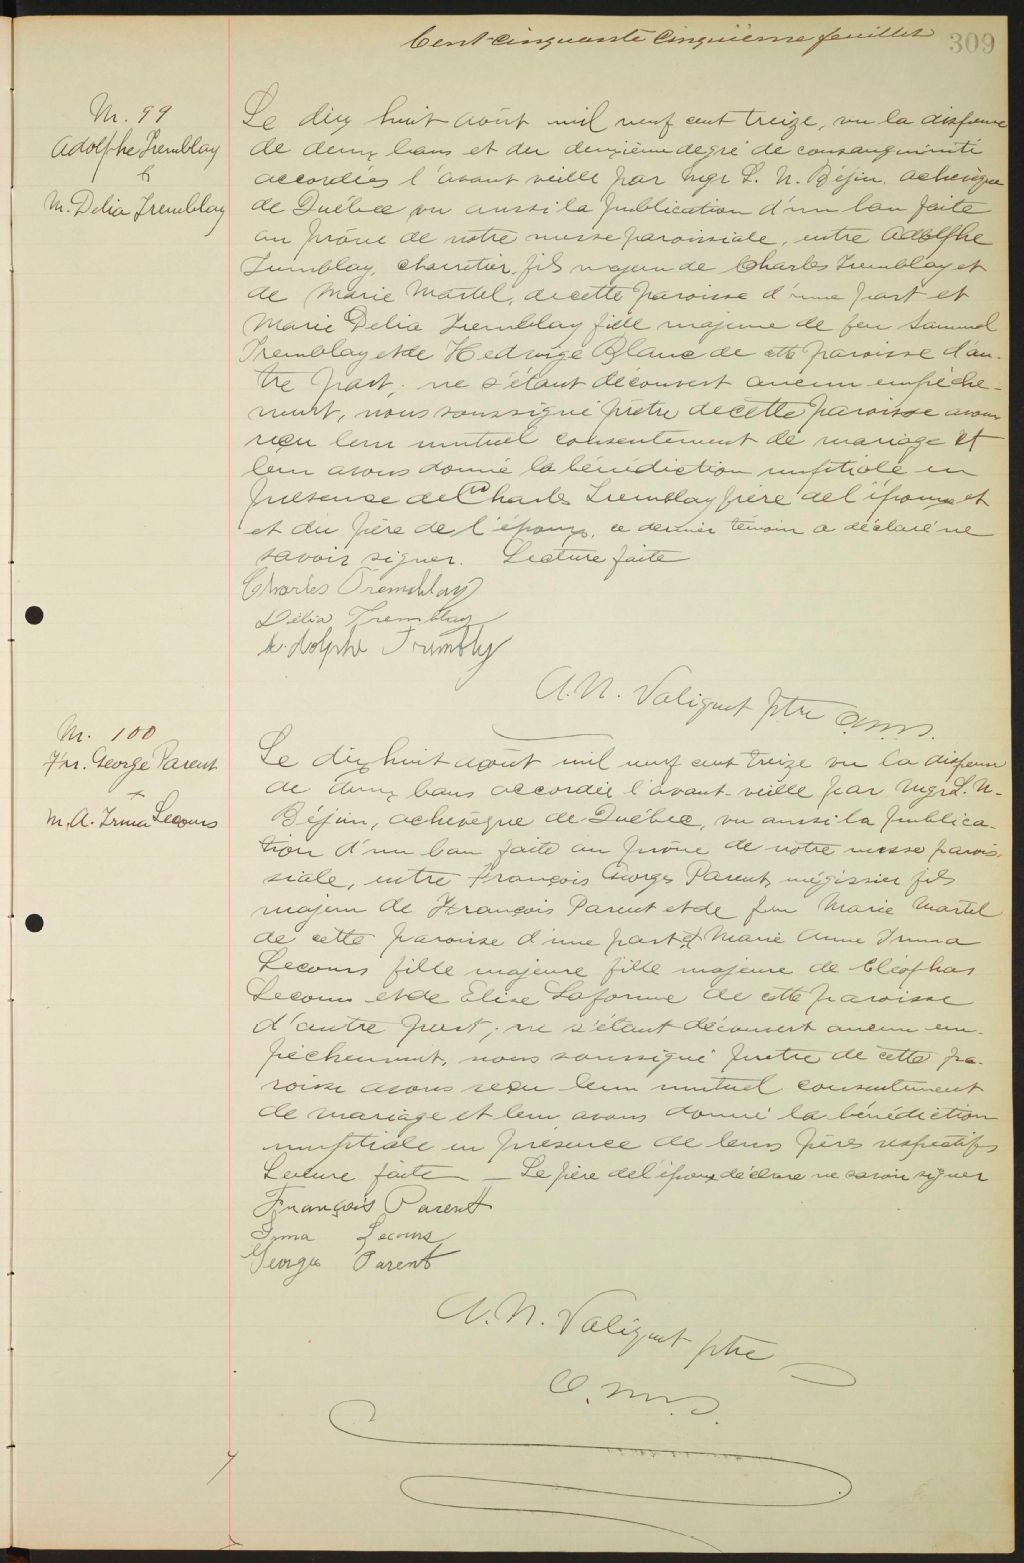 Cent-cinquante cinquième feuillet
309
M. 99
Adolphe Tremblay
&
M. Delia Tremblay
Le dix huit août mil neuf cent treize, vu la dispense
de deux bans et du deuxième degré de consanguinité
accordées l'avant veille par Mgr L. N. Béjin, achevêque
de Québec vu aussi la publication d'un ban faite
au prône de notre messe paroissiale, entre Adolphe
Tremblay, charretier, fils majeur de Charles Tremblay et
de Marie Martel, de cette paroisse d'une part et
Marie Delia Tremblay fille majeure de feu Samuel
Tremblay et de Hedwige Blanc de cette paroisse d'au-
tre part; ne s'étant découvert aucun empêche-
ment, nous soussigné prêtre de cette paroisse avons
reçu leur mutuel consentement de mariage et
leur avons donné la bénédiction nuptiale en
présence de Charles Tremblay frère de l'épouse et
et du père de l'époux, ce dernier témoin a déclaré ne
savoir signer. Lecture faite
Charles Tremblay
Délia Tremblay
Adolphe Trembly
A. N. Valiquet ptre O.M.I.
M. 100
Frs. George Parent
+
M. A. Irma Lecours
Le dix huit août mil neuf cent treize vu la dispense
de deux bans accordée l'avant-veille par Mgr L. N.
Béjin, achevêque de Québec, vu aussi la publica-
tion d'un ban faite au prône de notre messe parois-
siale, entre François Georges Parent, mégissier fils
majeur de François Parent et de feu Marie Martel
de cette paroisse d'une part et Marie Anne Irma
Lecours fille majeure fille majeure de Cléophas
Lecours et de Elise Laforme de cette paroisse
d'autre part; ne s'étant découvert aucun em-
pêchement, nous soussigné prêtre de cette pa-
roisse avons reçu leur mutuel consentement
de mariage et leur avons donné la bénédiction
nuptiale en présence de leurs pères respectifs
Lecture faite — Le père de l'époux déclare ne savoir signer
François Parent
Irma Lecours
George Parent
A. N. Valiquet ptre
O.M.I.